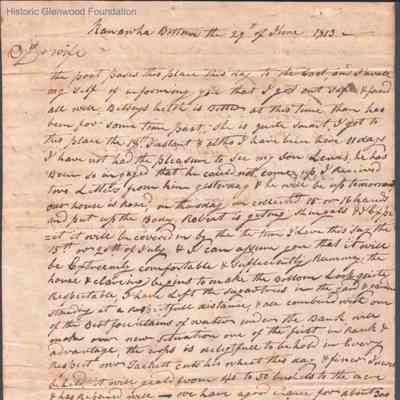 Historic Glenwood Foundation
Kanawha Bottom the 29th of June 1813
Dr wife
the post pases this place this day to the East, and I avail
my Self of informing you that I got out Safe & found
all well Bitseys helth is Better at this time than has
been for some time past, she is quite smart, I got to
this place the 18th Instant & altho I have been here 11 days
I have not had the pleasure to see my son Lewis, he has
Been so ingaged that he could not come up, I received
two Letters from him yesterday & he will be up tomorrow
our house is raised, on thursday we collected 15 or 16 hands
and put up the Body, Robert is geting shingals &
it will be covered in by the time I have this say the
15th or 20th of July, & I can assure you that it will
be Extreemly comfortable & sufficiently Roomey, the
house & clearing begins to make the Bottom Look quite
Respectable, I have Left the sugar trees in the yard
standing at a respectfull distance, & all combined with one
of the Best fountains of water under the Bank will
make our new Situation one of the first in Rank &
advantage, the crops is delightfull to behold in Every
respect our Sackett cuts his wheat this day &
it will yeald from 40 to 50 bushels to the acre
& has Ripened well — we have a good chance for about 300